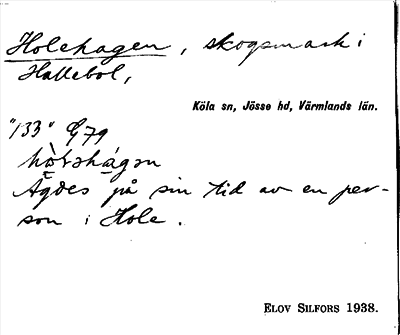 Holehagen, skogsmark i
Hallebol,
Köla sn, Jösse hd, Värmlands län.
"133" G79
Ägdes på sin tid av en per-
son i Hole.
ELOV SILFORS 1938.